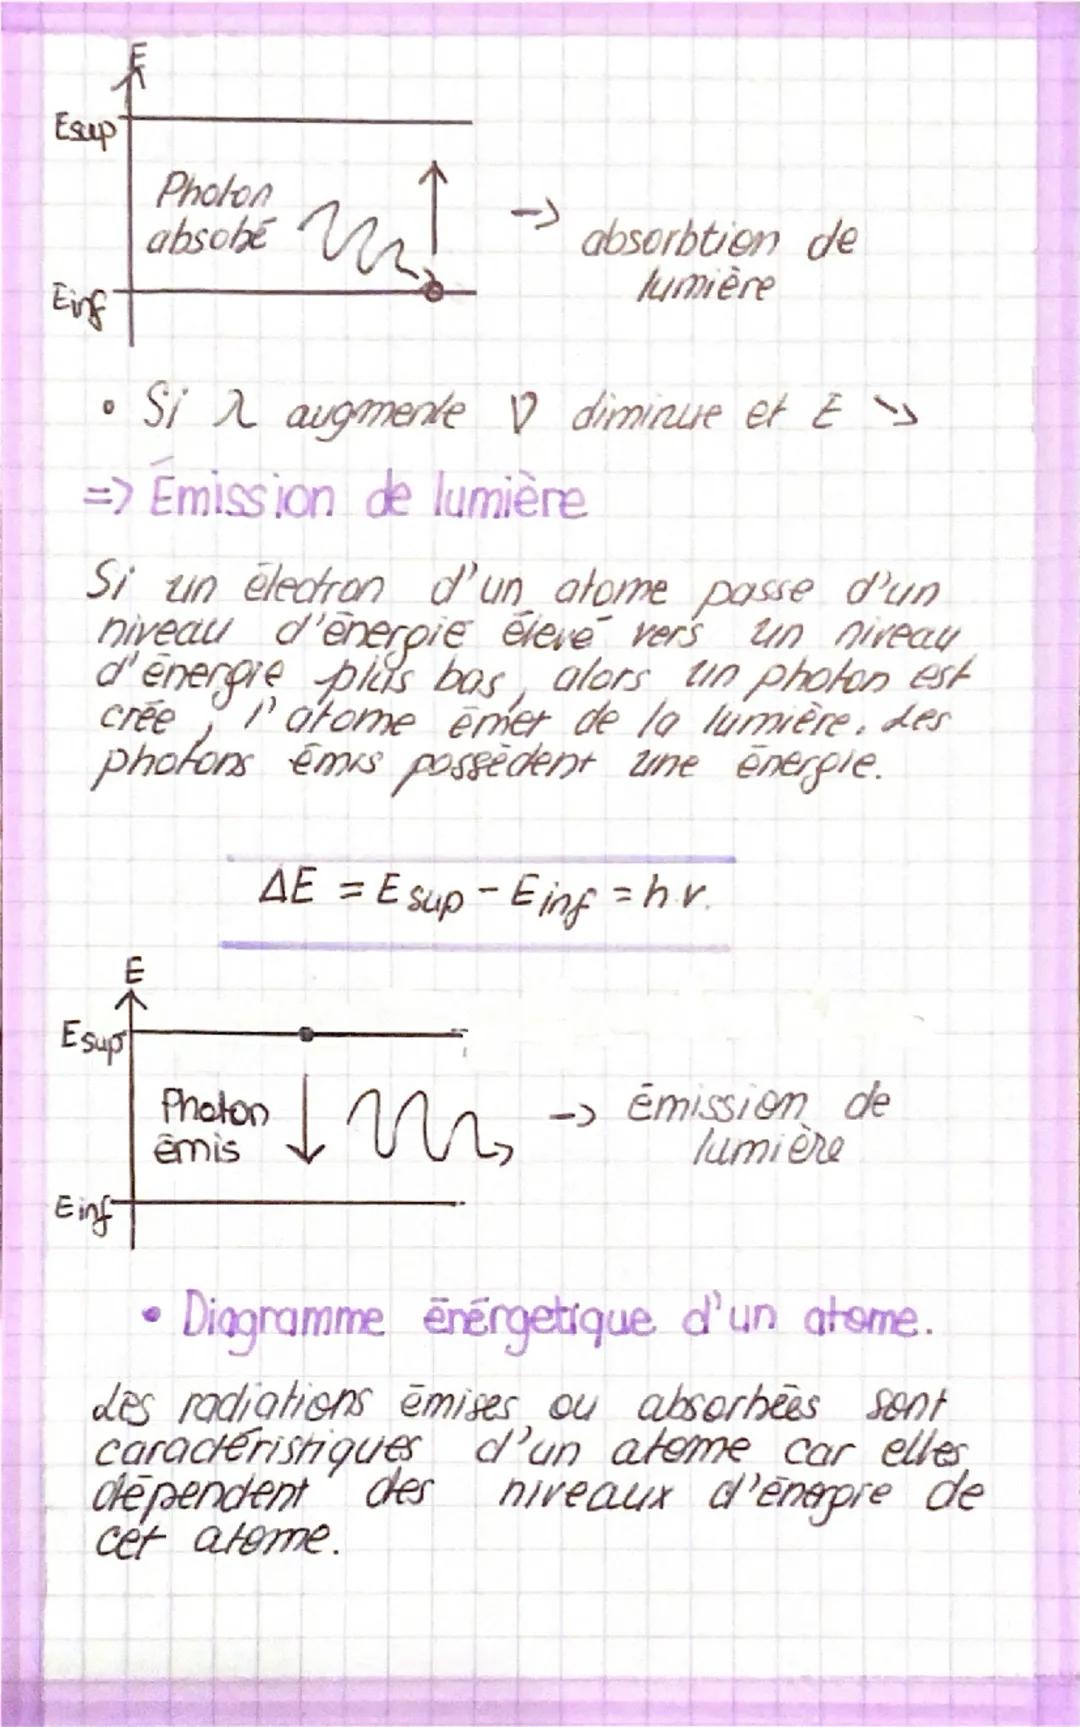 E
Esup
Photon
absobé
-> absorbtion de
lumière
Einf
• Si λ augmente ν diminue et E ↘
=> Émission de lumière
Si un électron d'un atome passe d'un
niveau d'énergie élevé vers un niveau
d'énergie plus bas, alors un photon est
crée, l'atome émet de la lumière. Les
photons émis possèdent une énergie.
ΔE = E sup - E inf = h.ν.
E
E sup
Photon
émis
-> émission de
lumière
E inf
• Diagramme énérgetique d'un atome.
Les radiations émises ou absorbées sont
caractéristiques d'un atome car elles
dépendent des niveaux d'énergie de
cet atome.